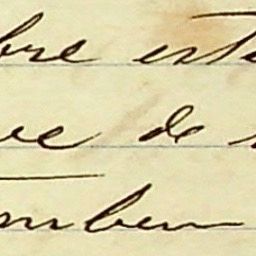 bre este
ve de
mbem